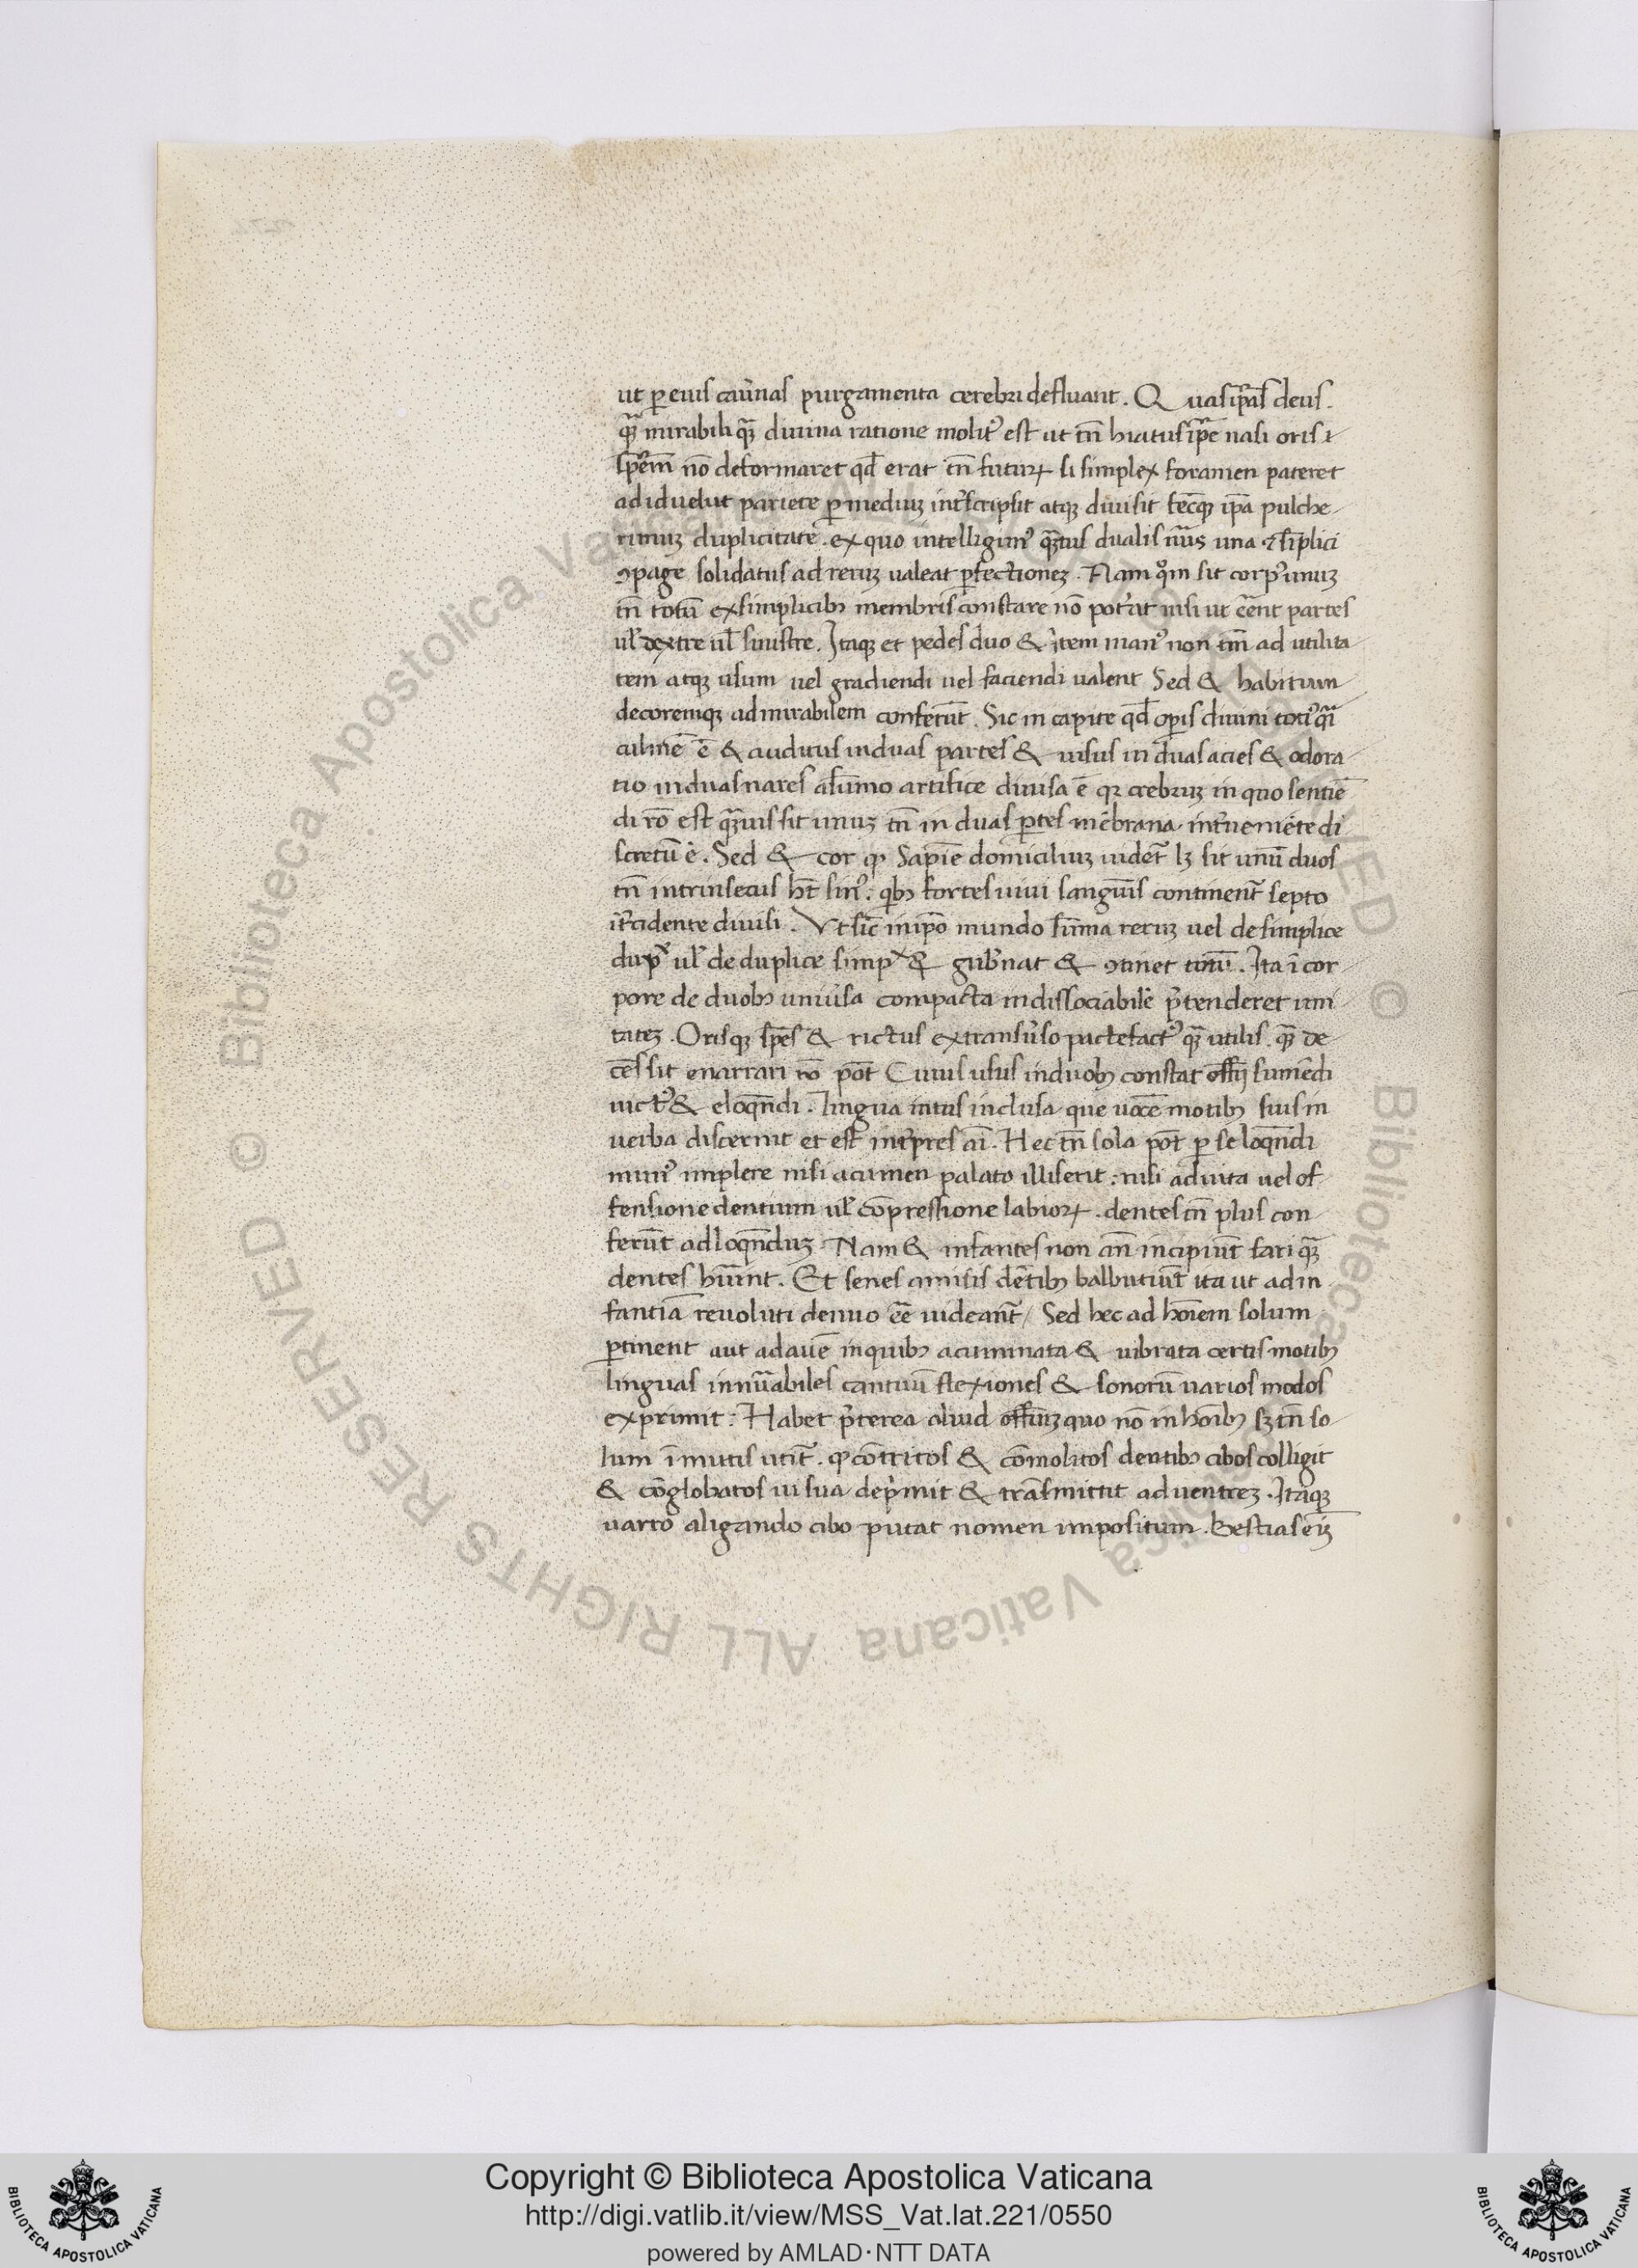 ut ꝑ eius cau̾nas purgamenta cerebri defluant. Quas ip̄as deus.
quaᷓ mirabili quaᷓ diuina ratione molit᷒ est ut tn̄ hiatus ip̄e nasi oris ⁊
sp̄em nō deformaret qd̄ erat tn̄ futuꝝ si simplex foramen pateret
ad id uelut pariete ꝑ mediuꝫ int̾scripsit atqꝫ diuisit fecitqꝫ ip̄a pulche
rimuꝫ duplicitate. ex quo intelligim᷒ quaᷓtus dualis nūs una ⁊ siplici
ꝯpage solidatus ad reruꝫ ualeat ꝑfectioneꝫ. Nam qm̄ sit corp᷒ unuꝫ
tn̄ totū ex simplicibꝫ membris constare nō pot̾at nisi ut eēnt partes
ul̾ dextre ul̾ sinistre. Itaqꝫ et pedes duo & item man᷒ non tm̄ ad utilita
tem atqꝫ usum uel gradiendi uel faciendi ualent Sed & habitum
decoremqꝫ admirabilem conferūt. Sic in capite qd̄ oꝑis diuini toti᷒ q̄i
culmē ē & auditus in duas partes & uisus in duas acies & odora
tio in duas nares a sūmo artifice diuisa ē qꝛ crebruꝫ in quo sentiē
di rō est quaᷓuis sit unuꝫ tn̄ in duas ꝑtes mēbrana int̾ueniēte di
scretū ē. Sed & cor qꝫ sapiē domiciliuꝫ uidet᷑ lꝫ sit unū duos
tn̄ intrinsecus ht̄ sin᷒: qbꝫ fortes uiui sangu̅is continent᷑ septo
it̾cidente diuisi. Vt sic̄ in ip̄o mundo sūma reruꝫ uel de simplice
dupx̄ ul̾ de duplice simpx̄ & gub̾nat & ꝯtinet totū. Ita ī cor
pore de duobꝫ uniu̾sa compacta indissociabilē p̄tenderet uni
tateꝫ. Orisqꝫ sp̄es & rictus ex transu̾so patefact᷒ quaᷓ utilis. quaᷓ de
cēs sit enarrari nō pōt Cuius usus in duobꝫ constat offīj sumēdi
uict᷒ & eloqn̄di. lingua intus inclusa que uocē motibꝫ suis in
uerba discernit et est int̾pres aī. Hec tn̄ sola pōt ꝑ se loqn̄di
mun᷒ implere nisi acumen palato illiserit: nisi adiuta uel of
fensione dentium ul̾ cōpressione labioꝝ. dentes tn̄ plus con
ferūt ad loqn̄duꝫ. Nam & infantes non an̄ incipiūt fari quaᷓ
dentes hūint. Et senes amisis dētibꝫ balbutiūt ita ut ad in
fantiā reuoluti denuo eē uideant᷑ / Sed hec ad hoīem solum
ꝑtinent aut ad auē in quibꝫ acuminata & uibrata certis motibꝫ
linguas innūabiles cantuū flexiones & sonorū uarios modos
exprimit: Habet p̄terea aliud offīuꝫ quo nō in hoībꝫ sꝫ tn̄ so
lum ī mutis utit᷑. qꝫ cōtritos & cōmolitos dentibꝫ cibos colligit
& cōglobatos ui sua dep̾mit & trāsmittit ad uentreꝫ. Itaqꝫ
uarro a ligando cibo putat nomen impositum. Bestias eiꝫ
Copyright © Biblioteca Apostolica Vaticana
http://digi.vatlib.it/view/MSS_Vat.lat.221/0550
powered by AMLAD·NTT DATA